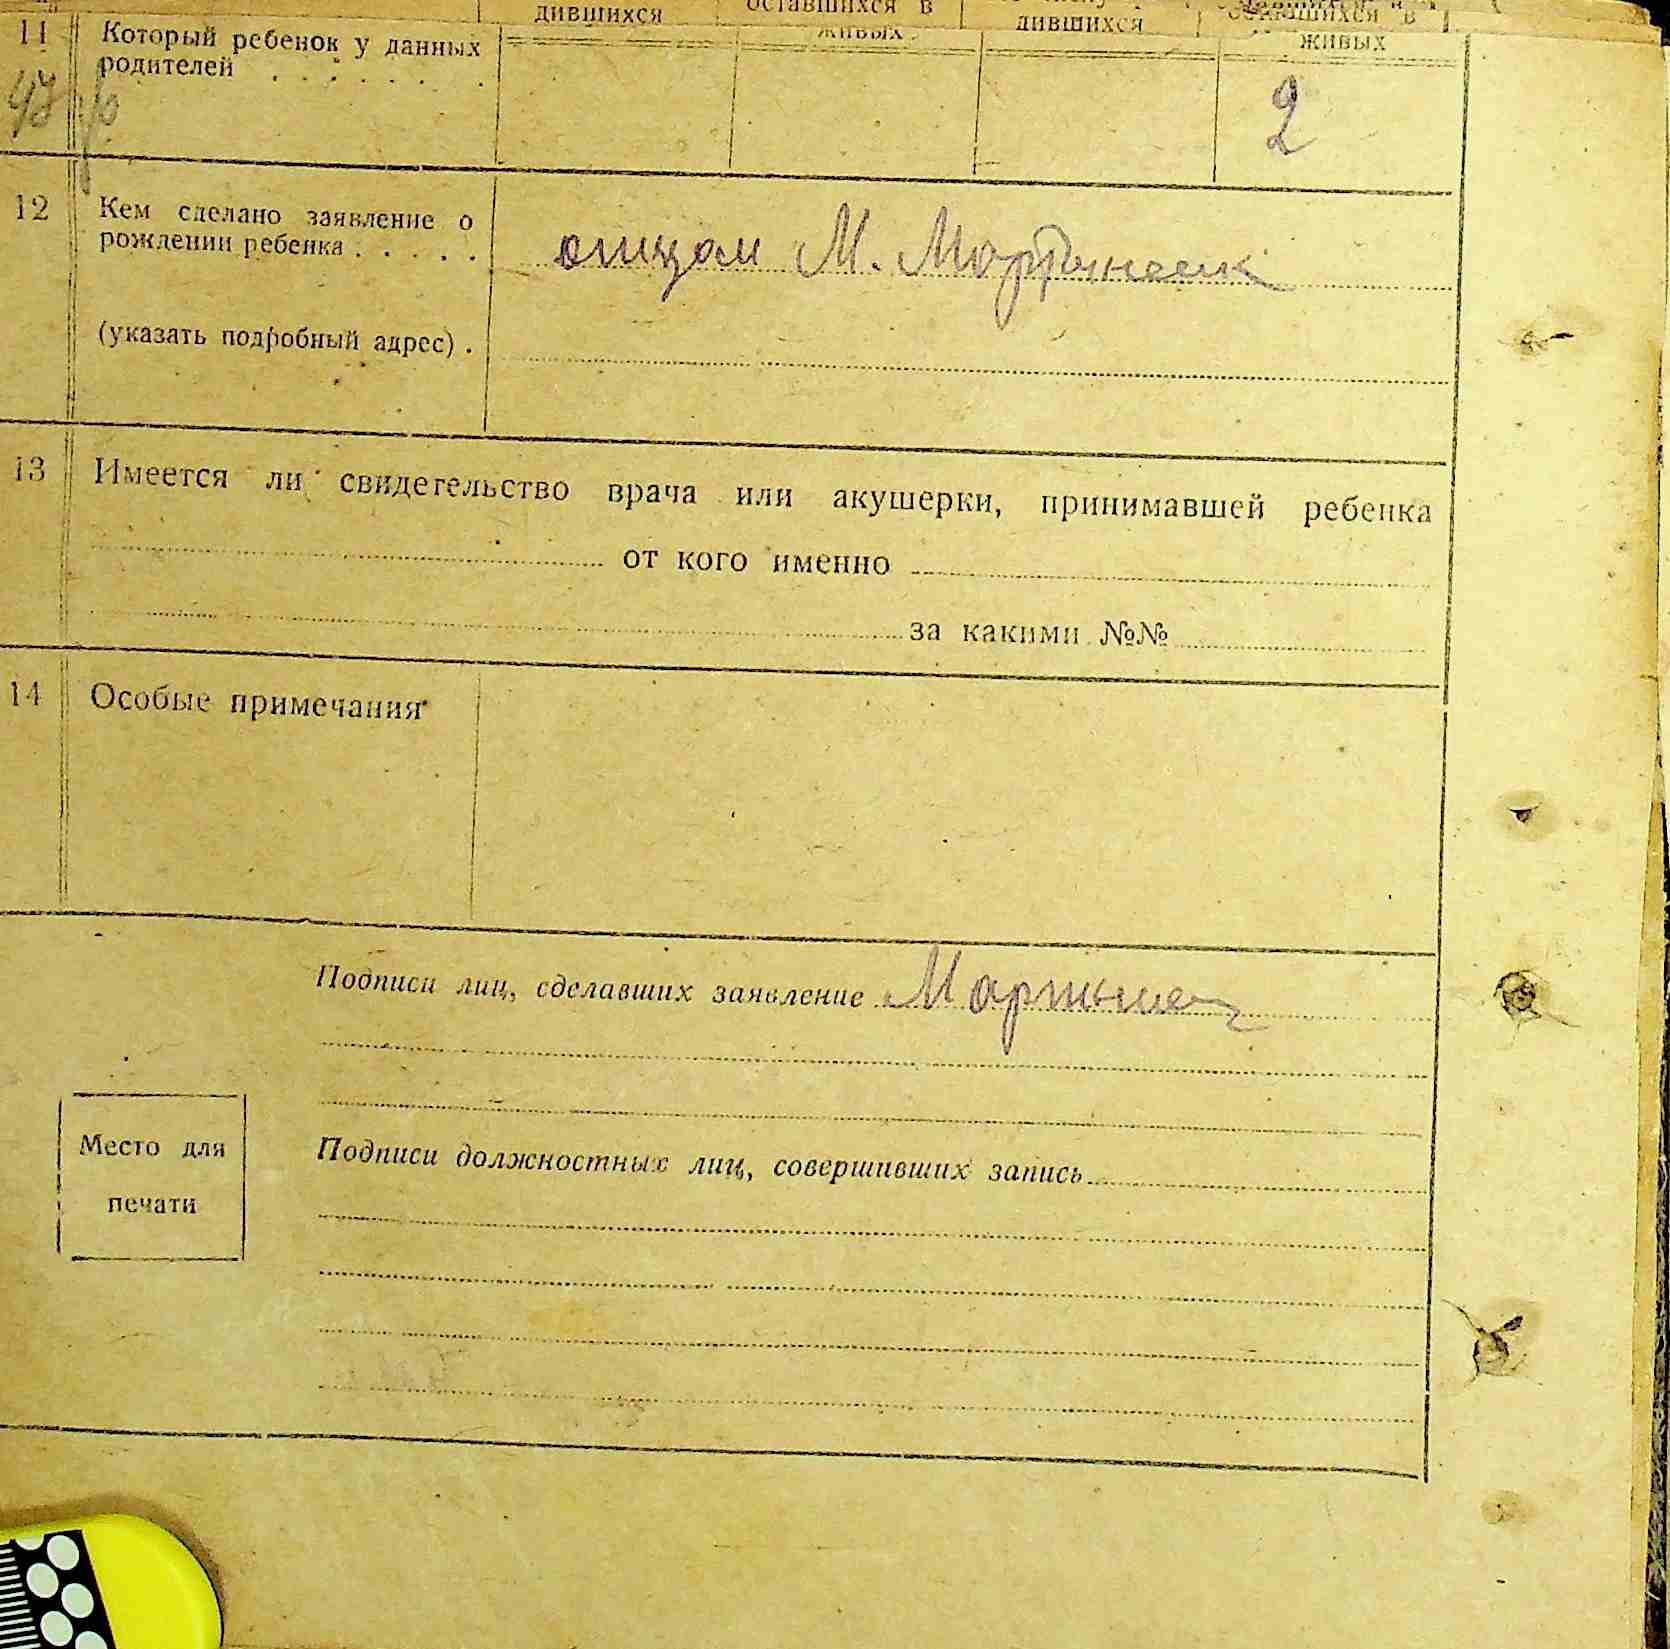 дившихся оставшихся в дившихся
живых живых
11 Который ребенок у данных
родителей . . . . . . .
2
12 Кем сделано заявление о
рождении ребенка . . . . . отцом М.
(указать подробный адрес) .
13 Имеется ли свидетельство врача или акушерки, принимавшей ребенка
от кого именно
за какими №№
14 Особые примечания
Подписи лиц, сделавших заявление
Место для
печати
Подписи должностных лиц, совершивших запись